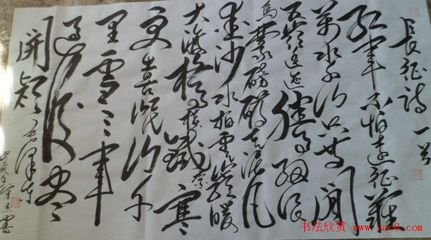 長征詩一首
紅軍不怕遠征難
萬水千山只等閒
五嶺逶迤騰細浪
烏蒙磅礴走泥丸
金沙水拍雲崖暖
大渡橋橫鐵索寒
更喜岷山千
里雪三軍
過後盡
開顏毛澤東
书法欣赏 www.yac8.com